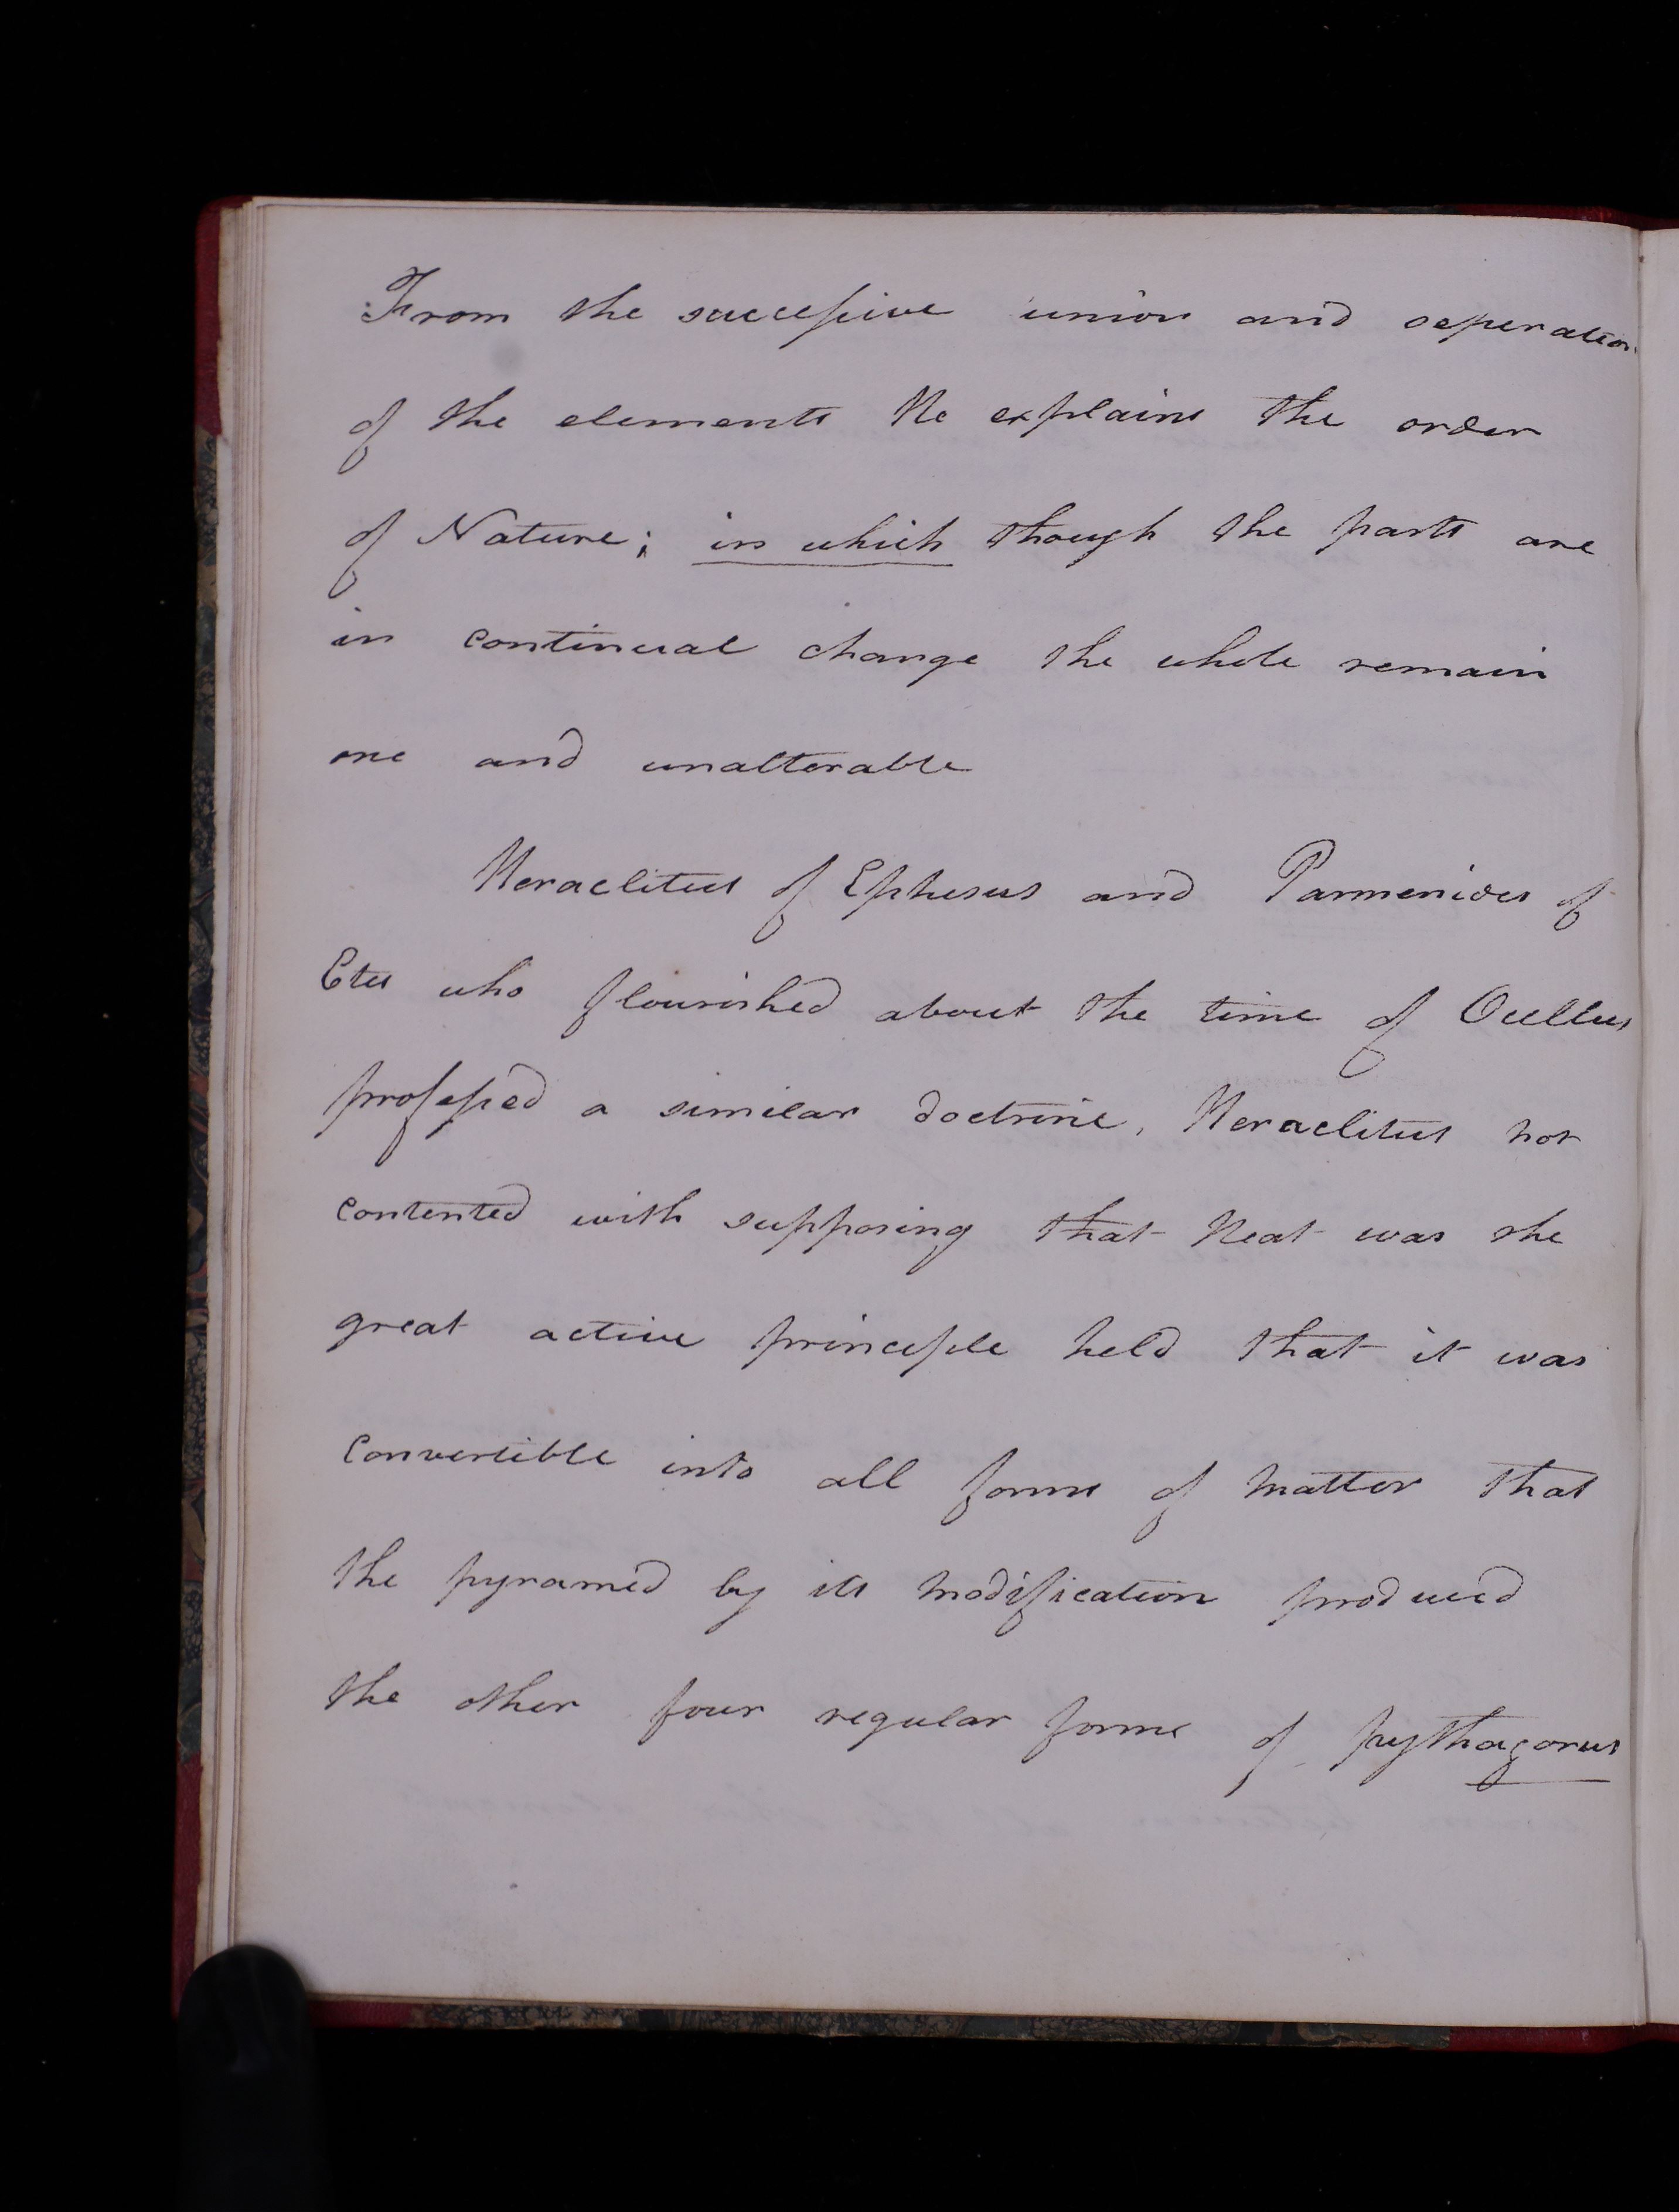 From the successive union and seperation
of the elements he explains the order
of Nature; in which though the parts are
in continual change the whole remain
one and unalterable
Heraclitus of Ephesus and Parmenides of
who flourished about the time of Ocellus
professed a similar doctrine, Heraclitus not
contented with supposing that heat was the
great active principle held that it was
convertible into all forms of matter that
the pyramid by its modification produced
the other four regular forms of pythagorus